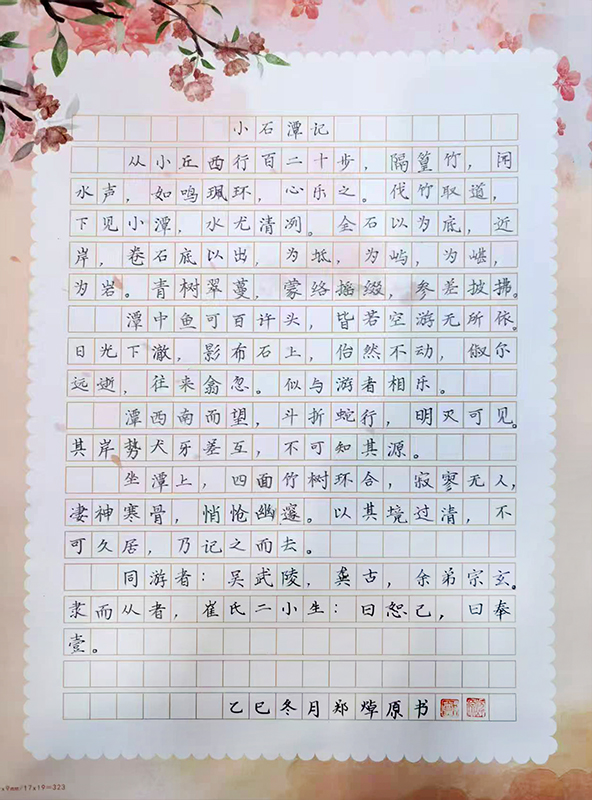 小石潭记
从小丘西行百二十步，隔篁竹，闻
水声，如鸣珮环，心乐之。伐竹取道，
下见小潭，水尤清冽。全石以为底，近
岸，卷石底以出，为坻，为屿，为嵁，
为岩。青树翠蔓，蒙络摇缀，参差披拂。
潭中鱼可百许头，皆若空游无所依。
日光下澈，影布石上，佁然不动，俶尔
远逝，往来翕忽。似与游者相乐。
潭西南而望，斗折蛇行，明灭可见。
其岸势犬牙差互，不可知其源。
坐潭上，四面竹树环合，寂寥无人，
凄神寒骨，悄怆幽邃。以其境过清，不
可久居，乃记之而去。
同游者：吴武陵，龚古，余弟宗玄。
隶而从者，崔氏二小生：曰恕己，曰奉
壹。
乙巳冬月郑焯原书
x9mm/17x19=323